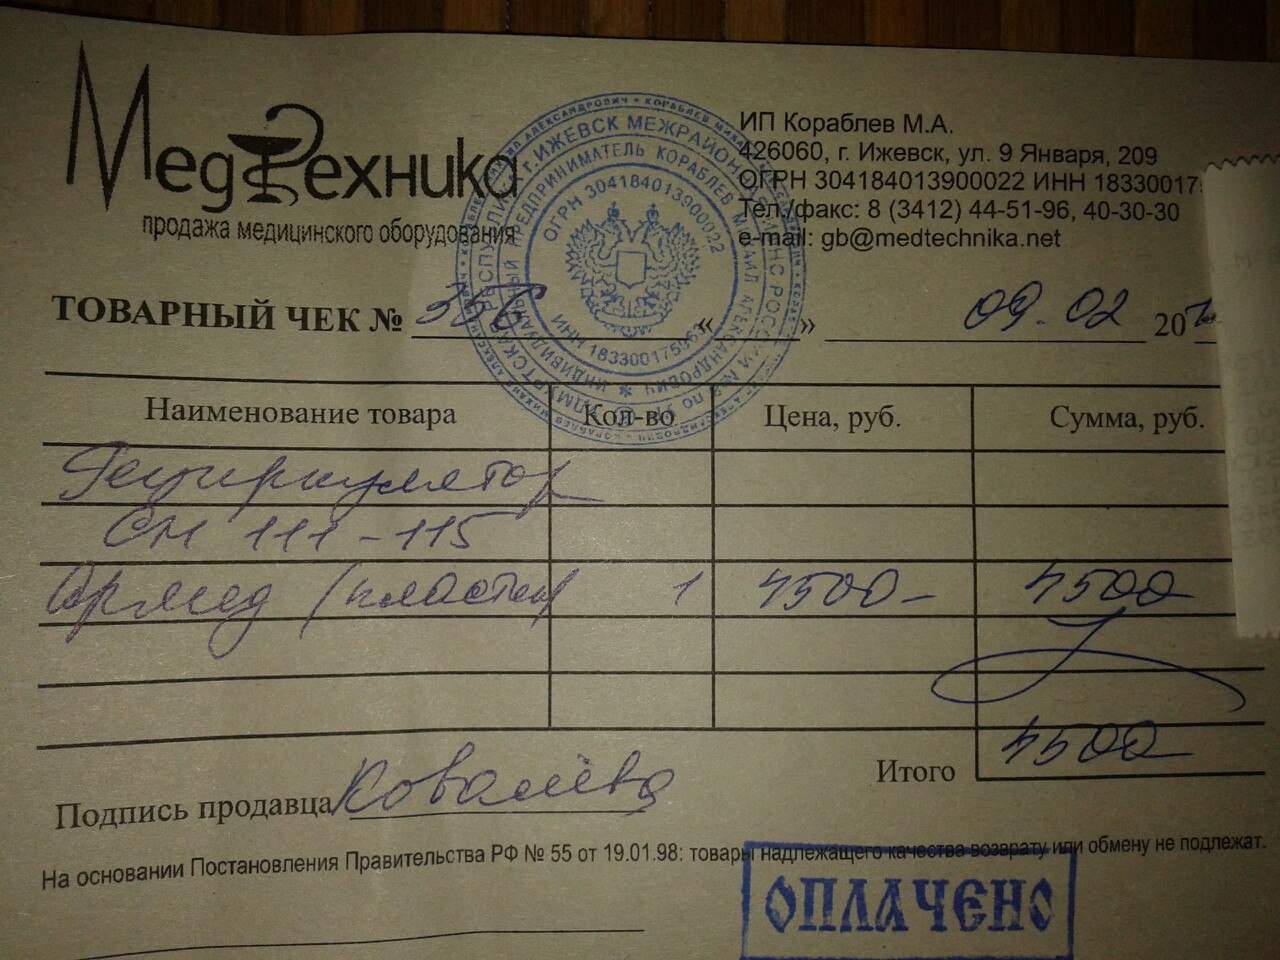 МедТехника
продажа медицинского оборудования
ИП Кораблев М.А.
426060, г. Ижевск, ул. 9 Января, 209
ОГРН 304184013900022 ИНН 18330017
Тел./факс: 8 (3412) 44-51-96, 40-30-30
e-mail: gb@medtechnika.net
ОГРН 304184013900022
ИНН 183300175963
ТОВАРНЫЙ ЧЕК № 356 « » 09.02 20
Наименование товара Кол-во Цена, руб. Сумма, руб.
Рециркулятор
СН 111-115
Армед (пластик 1 4500- 4500
Итого 4500
Подпись продавца Ковалёва
На основании Постановления Правительства РФ № 55 от 19.01.98: товары надлежащего качества возврату или обмену не подлежат.
ОПЛАЧЕНО